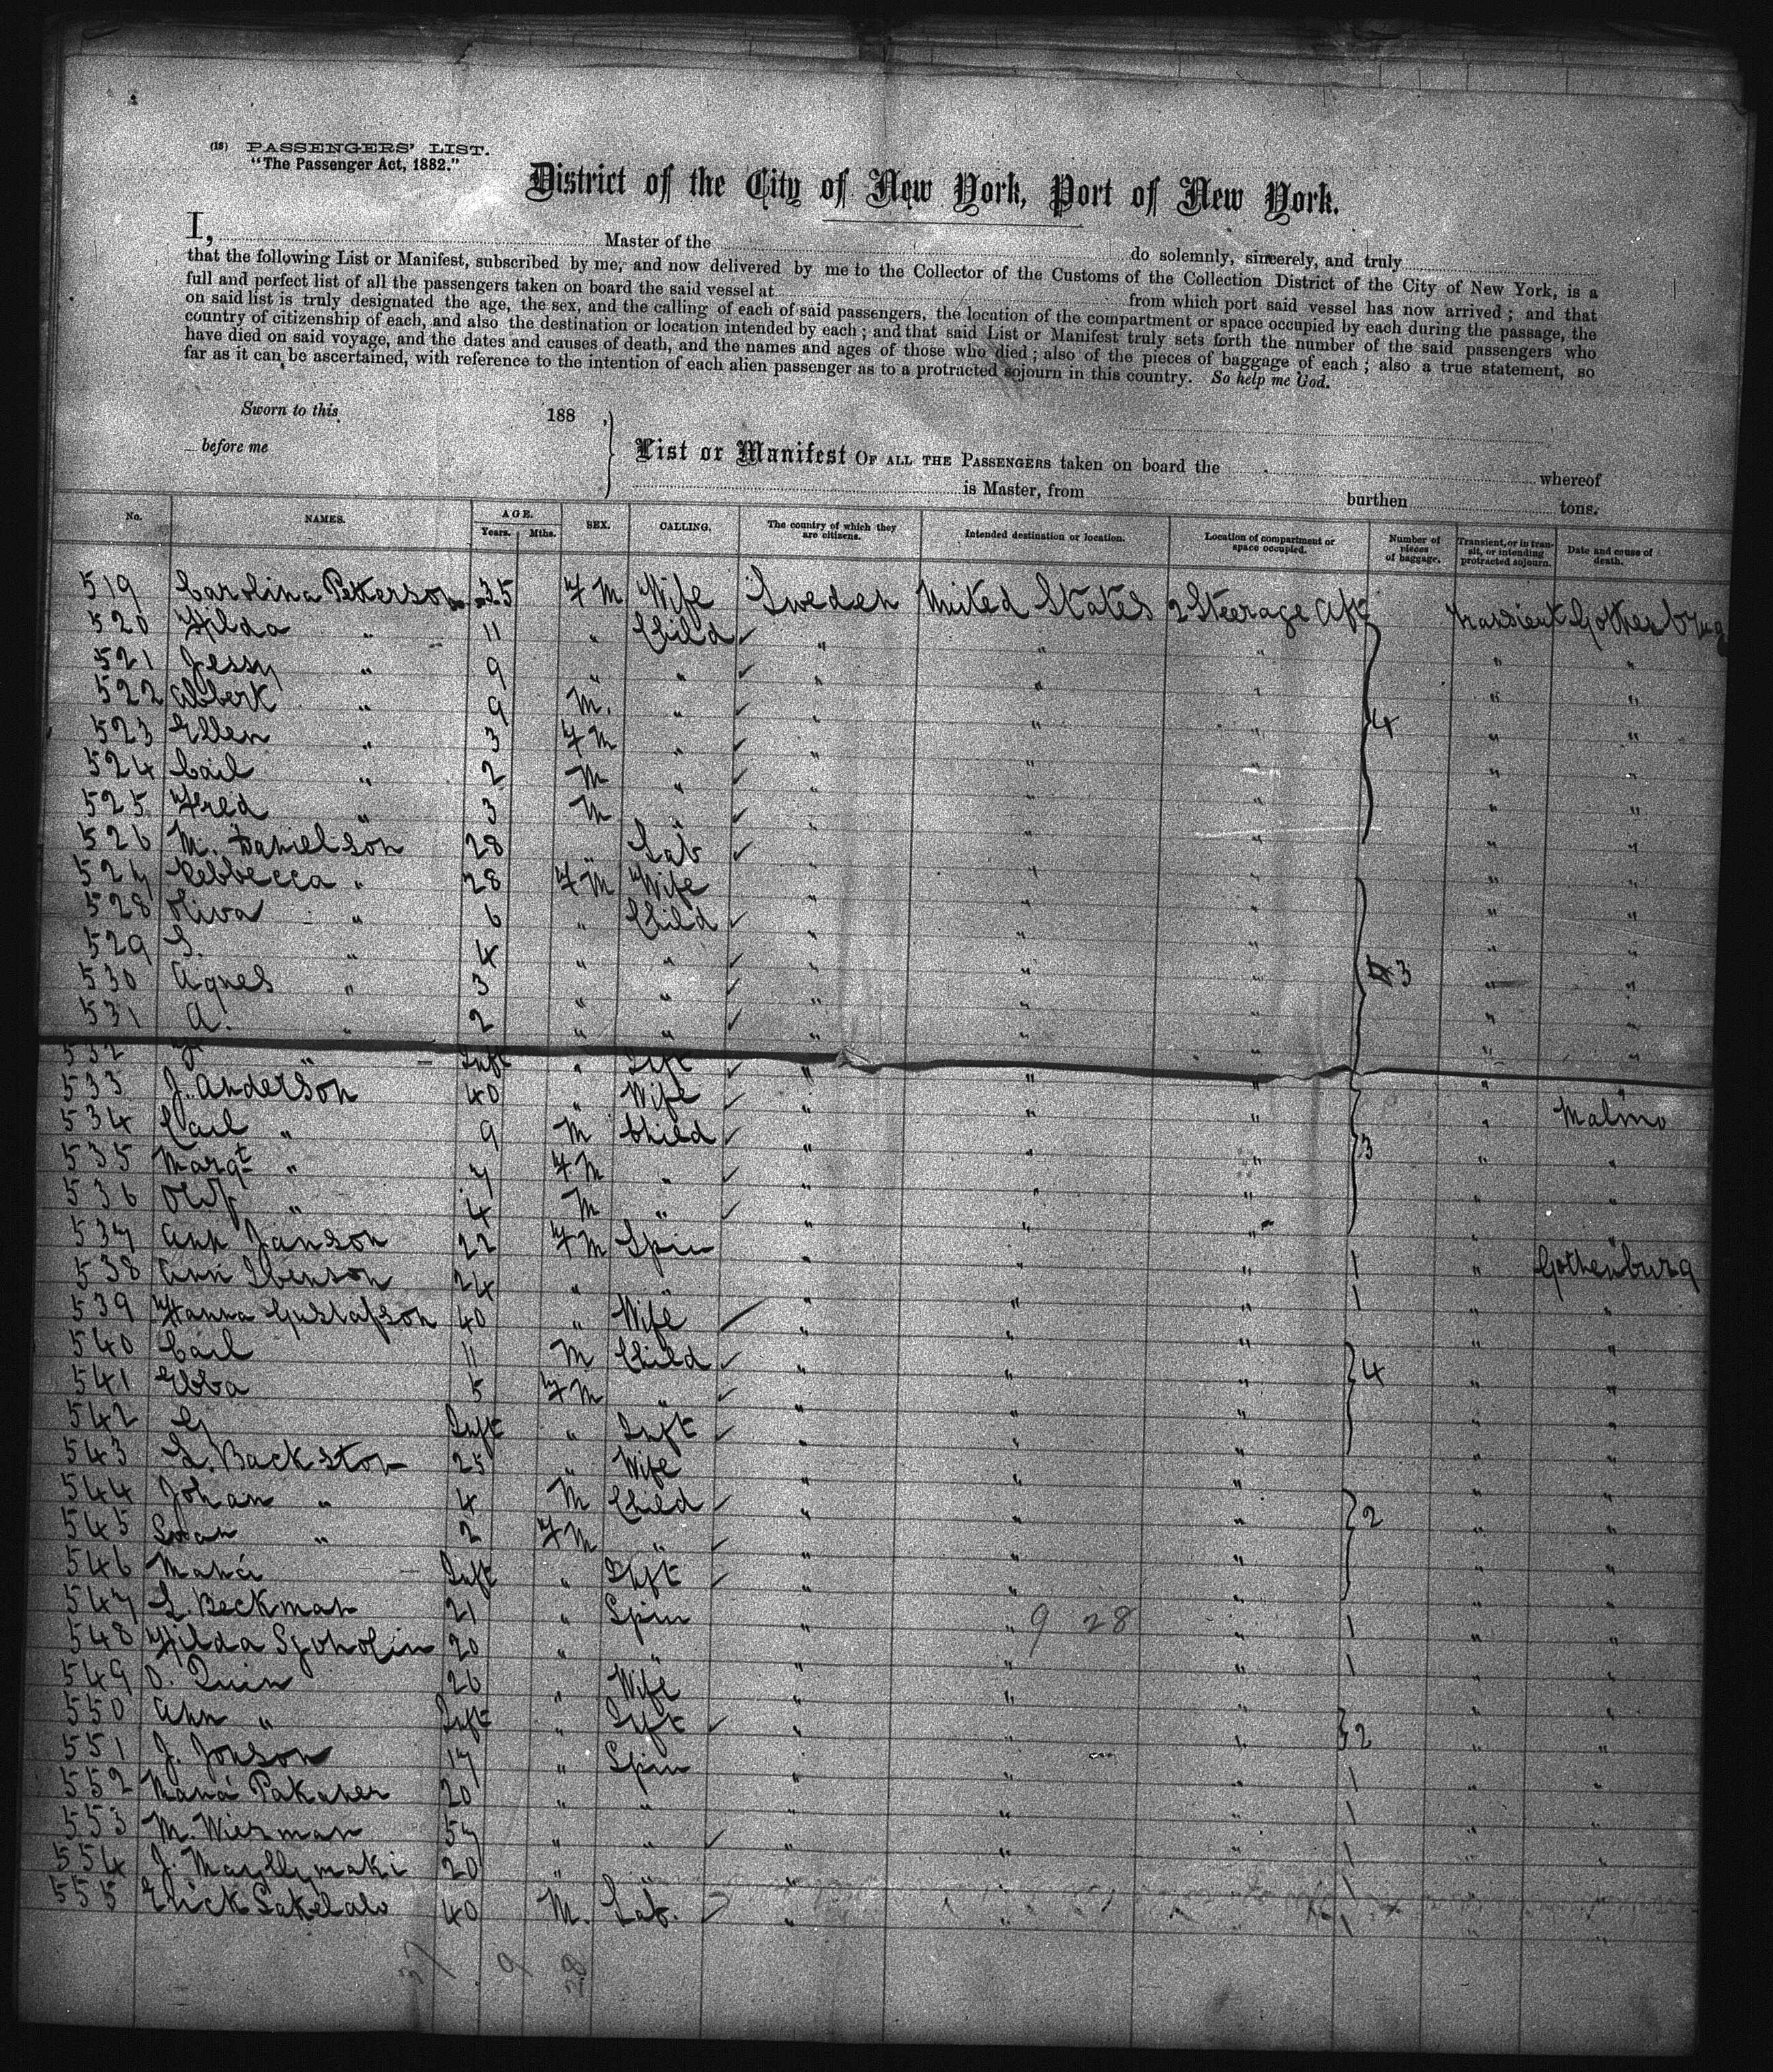 (18) PASSENGERS' LIST.
"The Passenger Act, 1882."
District of the City of New York, Port of New York.
I, Master of the do solemnly, sincerely, and truly
that the following List or Manifest, subscribed by me, and now delivered by me to the Collector of the Customs of the Collection District of the City of New York, is a
full and perfect list of all the passengers taken on board the said vessel at from which port said vessel has now arrived; and that
on said list is truly designated the age, the sex, and the calling of each of said passengers, the location of the compartment or space occupied by each during the passage, the
country of citizenship of each, and also the destination or location intended by each; and that said List or Manifest truly sets forth the number of the said passengers who
have died on said voyage, and the dates and causes of death, and the names and ages of those who died; also of the pieces of baggage of each; also a true statement, so
far as it can be ascertained, with reference to the intention of each alien passenger as to a protracted sojourn in this country. So help me God.
Sworn to this 188 ,
before me
List or Manifest OF ALL THE PASSENGERS taken on board the whereof
is Master, from burthen tons.
No. NAMES. AGE. Years. Mths. SEX. CALLING. The country of which they are citizens. Intended destination or location. Location of compartment or space occupied. Number of pieces of baggage. Transient, or in transit, or intending protracted sojourn. Date and cause of death.
519 Carolina Petterson 35 FM Wife Sweden United States 2 Steerage Aft Transient Gothenburg
520 Hilda " 11 " Child " " " " "
521 Jessy " 9 " " " " " " "
522 Albert " 9 M. " " " " " "
523 Ellen " 3 FM " " " " 4 " "
524 Carl " 2 M " " " " " "
525 Fred " 3 M " " " " " "
526 M. Danielson 28 " Lab " " " " "
527 Rebbecca " 28 FM Wife " " " " "
528 Oliva " 6 " Child " " " " "
529 S. " 4 " " " " " " "
530 Agnes " 3 " " " " " 3 " "
531 A. " 2 " " " " " " "
532 " Inft " Inft " " " " "
533 J. Anderson 40 " Wife " " " " Malmo
534 Carl " 9 M Child " " " 3 " "
535 Margt " 7 FM " " " " " "
536 Olof " 4 M " " " " " "
537 Ann Janson 22 FM Spin " " " 1 " Gothenburg
538 Ann Ibenson 24 " " " " " 1 " "
539 Hanna Gustafson 40 " Wife " " " " "
540 Carl 11 M Child " " " 4 " "
541 Ebba 5 FM " " " " " "
542 G Inft " Inft " " " " "
543 L. Backston 25 " Wife " " " " "
544 Johan " 4 M Child " " " 2 " "
545 " 2 FM " " " " " "
546 Maria Inft " Inft " " " " "
547 L. Beckman 21 " Spin " " " 1 " "
9 28
548 Hilda Sjoholin 20 " " " " " 1 " "
549 O. Quin 26 " Wife " " " " "
550 Ann " Inft " Inft " " " 2 " "
551 J. Jonson 17 " Spin " " " 1 " "
552 Maria Pakanen 20 " " " " " 1 " "
553 M. Wiesman 57 " " " " " 1 " "
554 J. 20 " " " " " 1 " "
555 Erick Lakelalo 40 M. Lab. " " " 1 " "
37 9 28